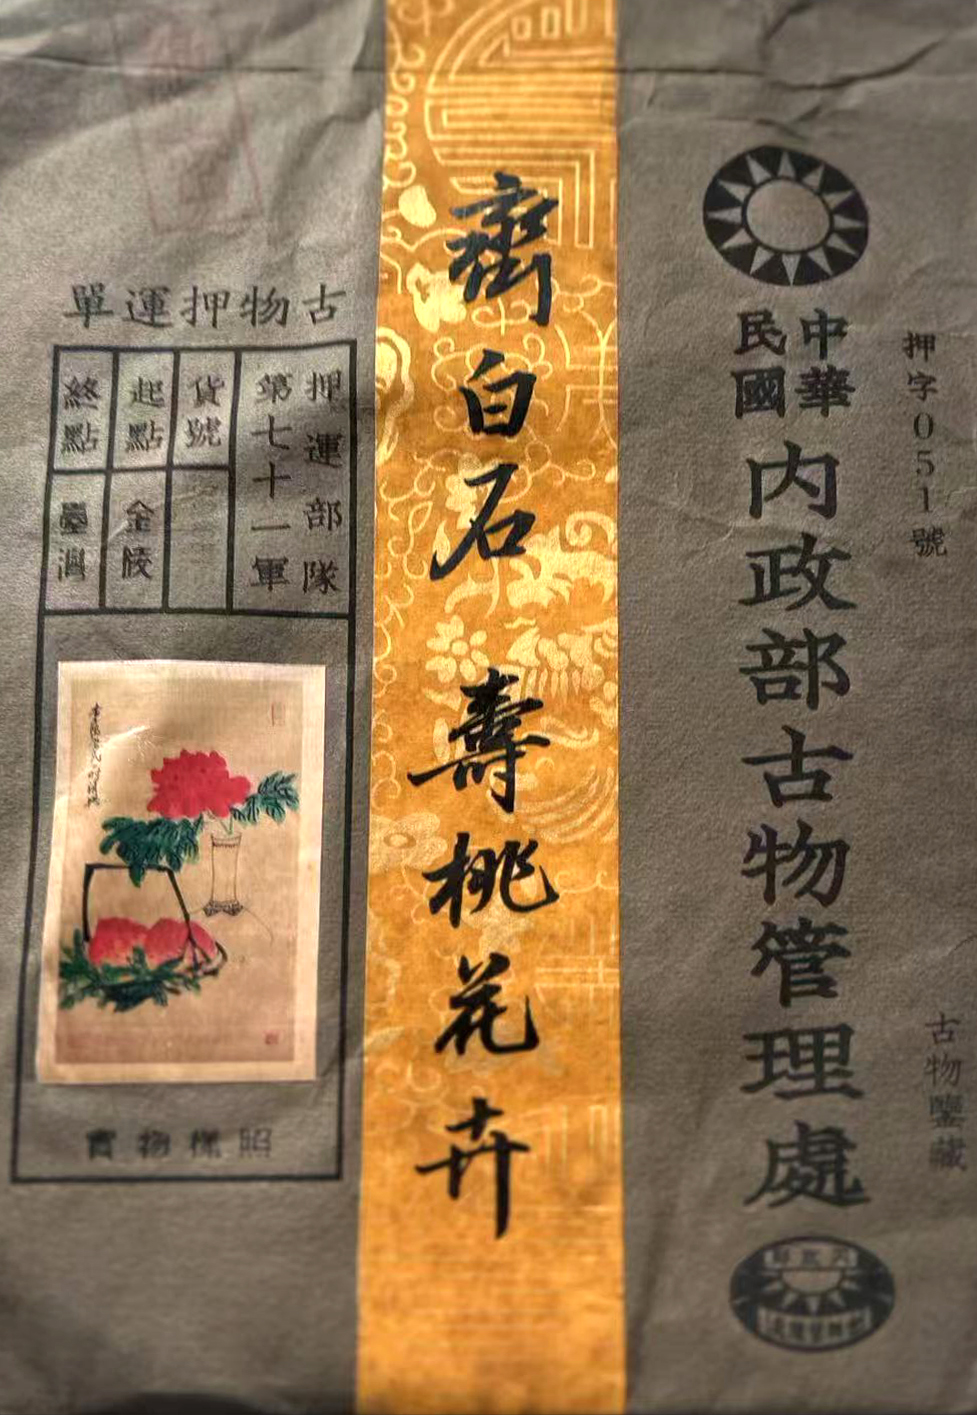 押字051號
古物鑒藏
中華
民國
内政部古物管理處
齊白石 壽桃花卉
古物押運單
押運部隊
第七十一軍
貨號
起點
金陵
終點
臺灣
實物樣照